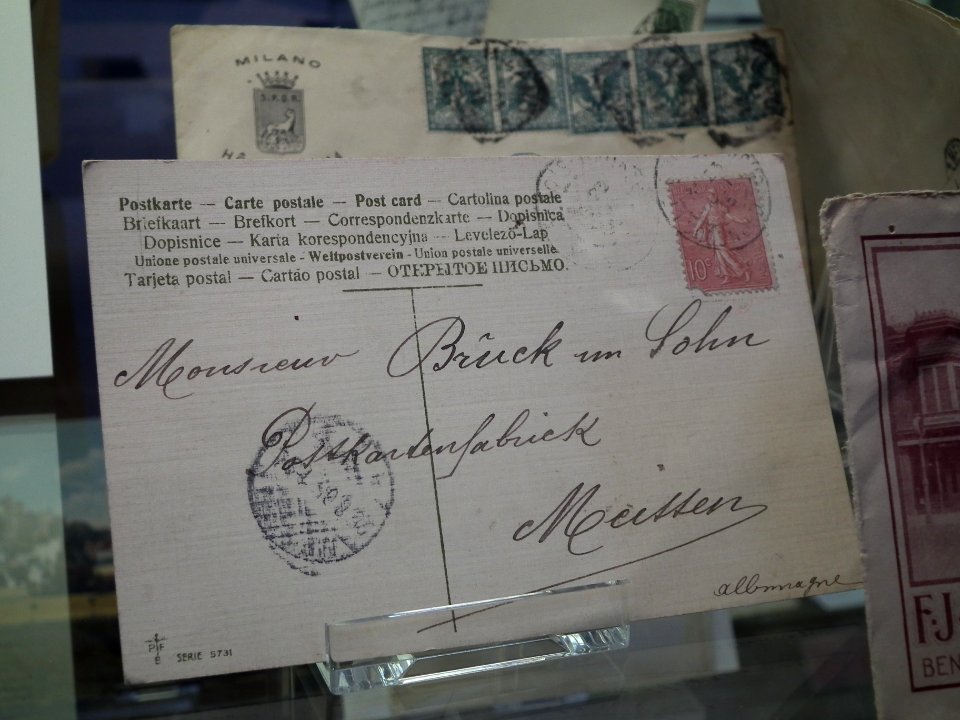 MILANO
S.P.Q.R.
Postkarte — Carte postale — Post card — Cartolina postale
Briefkaart — Brefkort — Correspondenzkarte — Dopisnica
Dopisnice — Karta korespondencyjna — Levelező-Lap
Unione postale universale - Weltpostverein - Union postale universelle.
Tarjeta postal — Cartão postal — ОТКРЫТОЕ ПИСЬМО.
10c
Monsieur Brück un Sohn
Postkartenfabrick
Meissen
allemagne
PF
B
SERIE 5731
F.J.
BEN